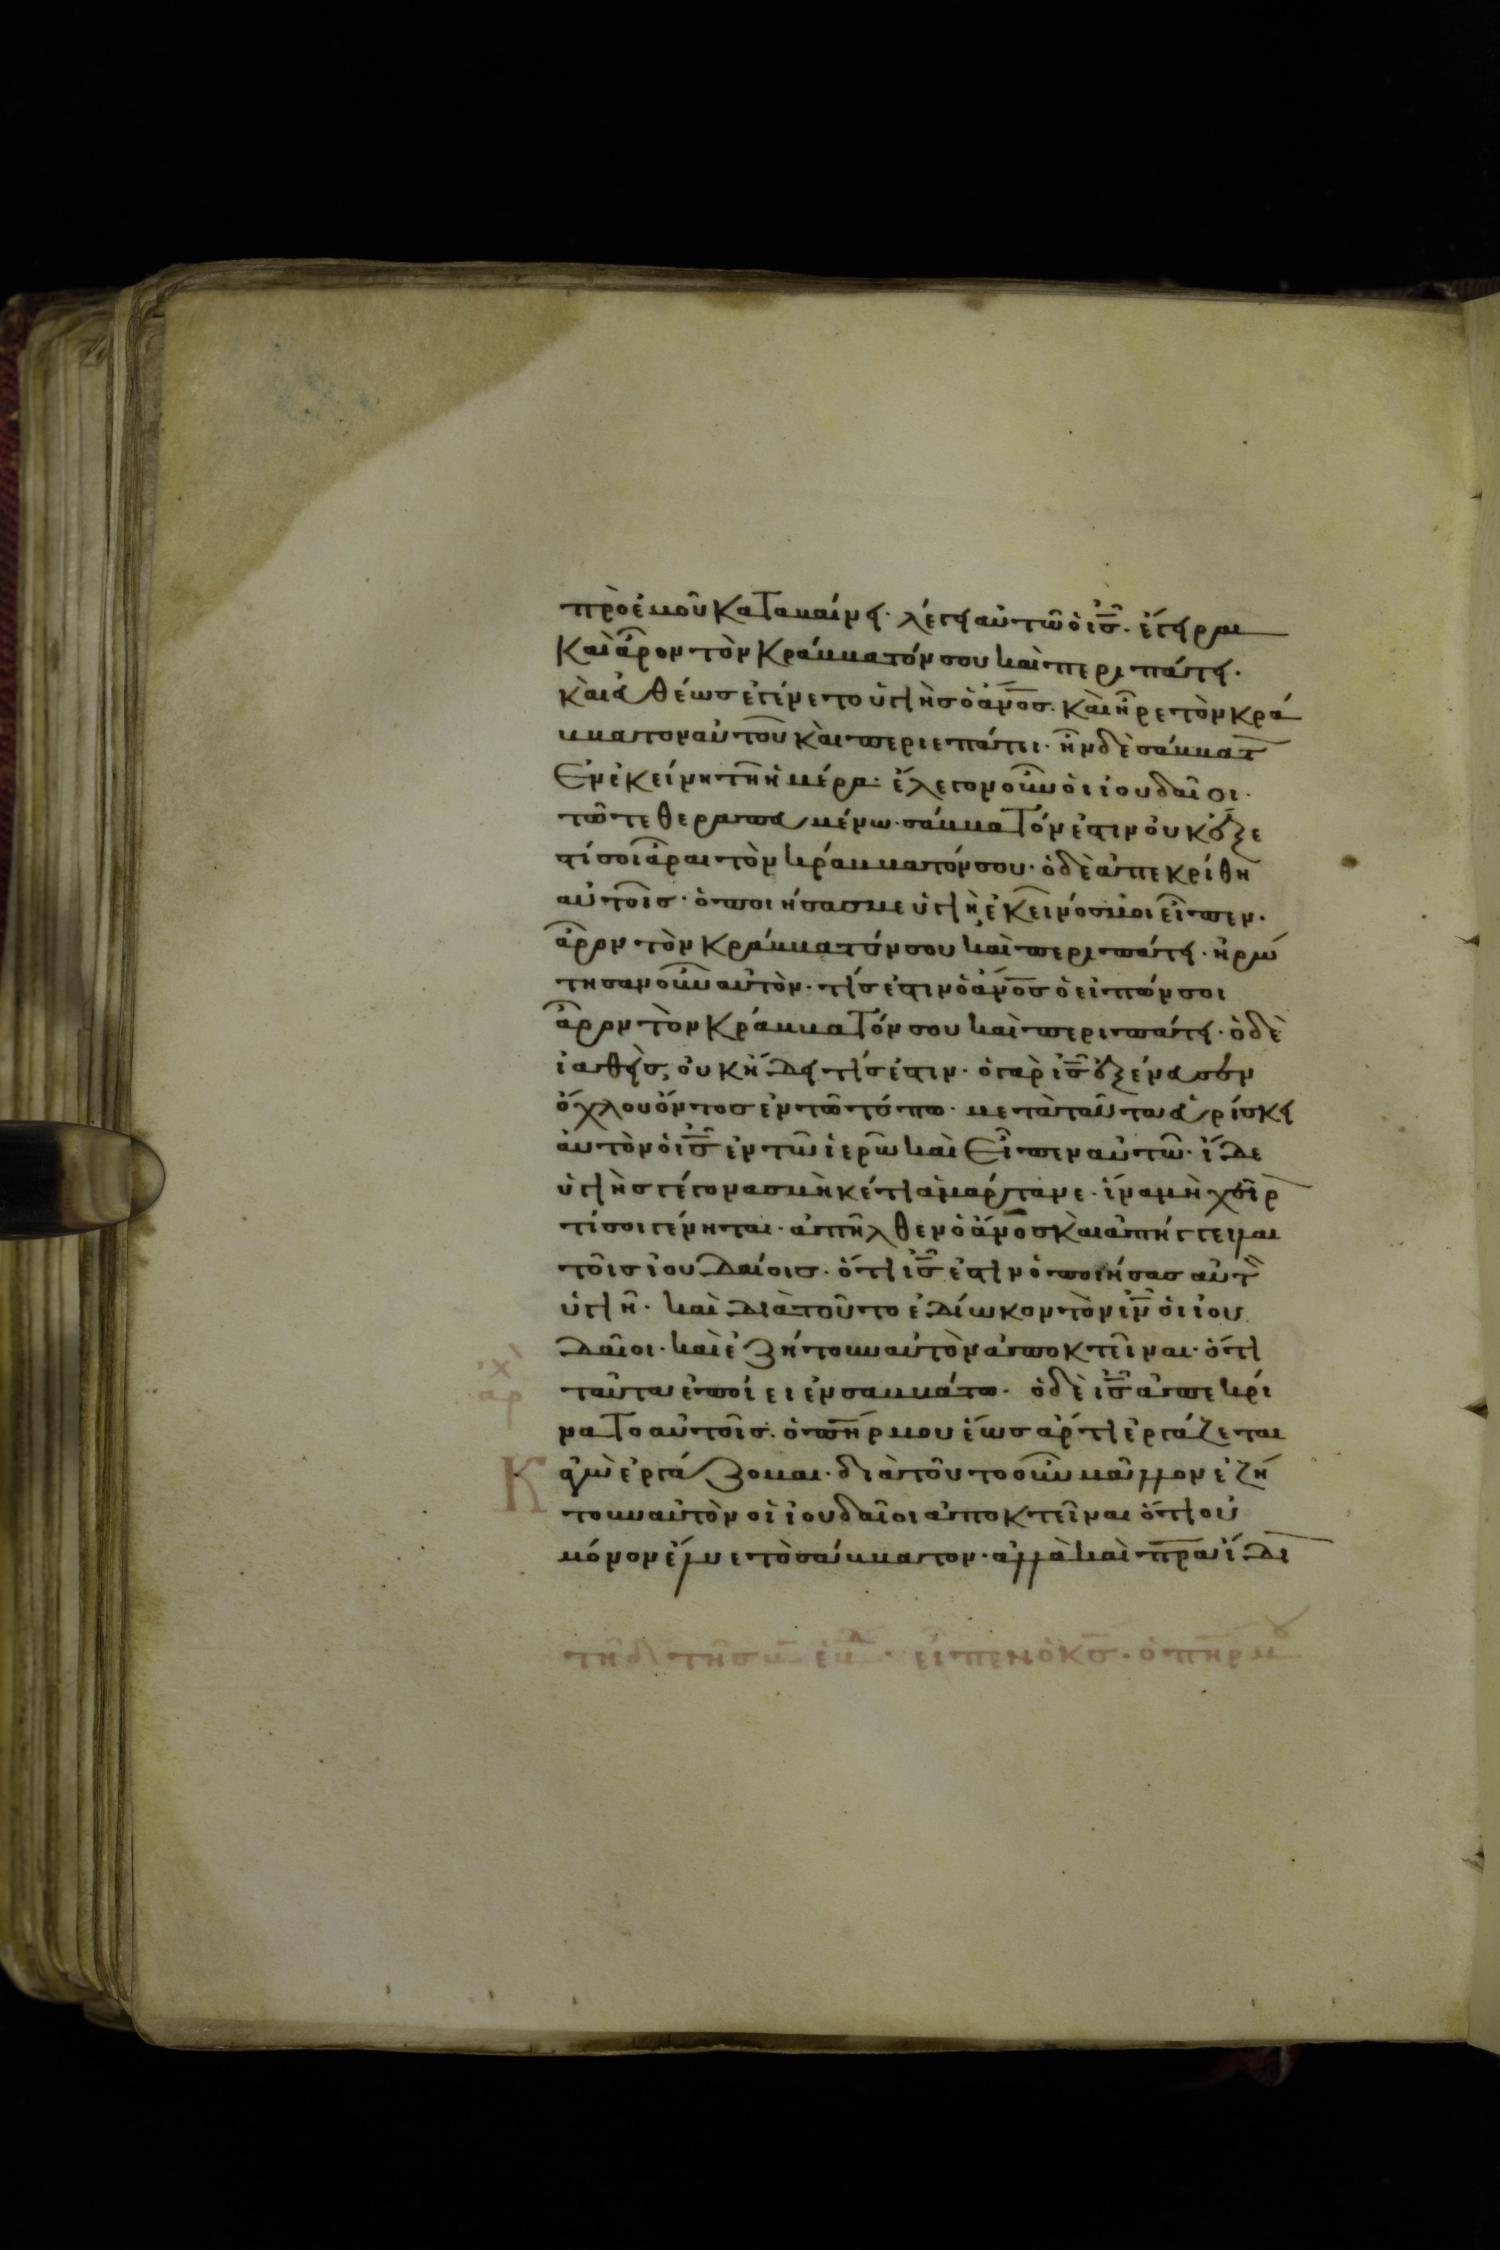 πρὸ ἐμοῦ καταβαίνει· λέγει αὐτῶ ὁ ἰς̅· ἔγειραι
καὶ ἆρον τὸν κράββατόν σου καὶ περιπάτει·
καὶ εὐθέως ἐγένετο ὑγιὴς ὁ ἄν̅ος̅· καὶ ἦρε τὸν κρά
ββατον αὐτοῦ καὶ περιεπάτει· ἦν δὲ σάββατ
ἐν ἐκείνη τῆ ἡμέρα· ἔλεγον οὖν ὁι ἰουδαῖοι·
τῶ τεθεραπευμένω· σάββατόν ἐστιν οὐκ ἔξε
στί σοι ἆραι τὸν κράββατόν σου· ὁ δὲ ἀπεκρίθη
αὐτοῖς· ὁ ποιήσας με ὑγιῆ ἐκεῖνός μοι εἶπεν·
ἆρον τὸν κράββατόν σου καὶ περιπάτει· ἠρώ
τησαν οὖν αὐτὸν· τίς ἐστιν ὁ ἄν̅ος̅ ὁ εἰπών σοι
ἆρον τὸν κράββατόν σου καὶ περιπάτει· ὁ δὲ
ἰαθεὶς, οὐκ ἤδει τίς ἐστιν· ὁ γὰρ ἰς̅ ἐξένευσεν
ὄχλου ὄντος ἐν τῶ τόπω· μετὰ ταῦτα εὑρίσκει
ἀυτὸν ὁ ἰς̅ ἐν τῶ ἱερῶ καὶ εἶπεν αὐτῶ· ἴδε
ὑγιὴς γέγονας μὴκέτι ἁμάρτανε· ἵνα μὴ χεῖρ
τί σοι γένηται· ἀπῆλθεν ὁ ἄν̅ος̅ καὶ ἀπήγγειλαι
τοῖς ἰουδαίοις· ὅτι ἰς̅ ἐστιν ὁ ποιήσας αὐτὸ
ὑγιῆ· καὶ διὰ τοῦτο ἐδίωκον τὸν ἰν̅ ὁι ἰου
δαῖοι· καὶ ἐζήτουν αὐτὸν ἀποκτεῖναι· ὅτι
ταῦτα ἐποίει ἐν σαββάτω· ὁ δὲ ἰς̅ ἀπεκρί
νατο αὐτοῖς· ὁ πη̅ρ μου ἕως ἄρτι ἐργάζεται
κἀγὼ ἐργάζομαι· διὰ τοῦτο οὖν μᾶλλον ἐζή
τουν αὐτὸν οἱ ἰουδαῖοι ἀποκτεῖναι ὅτι οὐ
μόνον ἔλυε τὸ σάββατον· ἀλλὰ καὶ πρ̅α ἴδι
εἶπεν ὁ κς̅· ὁ πη̅ρ μου